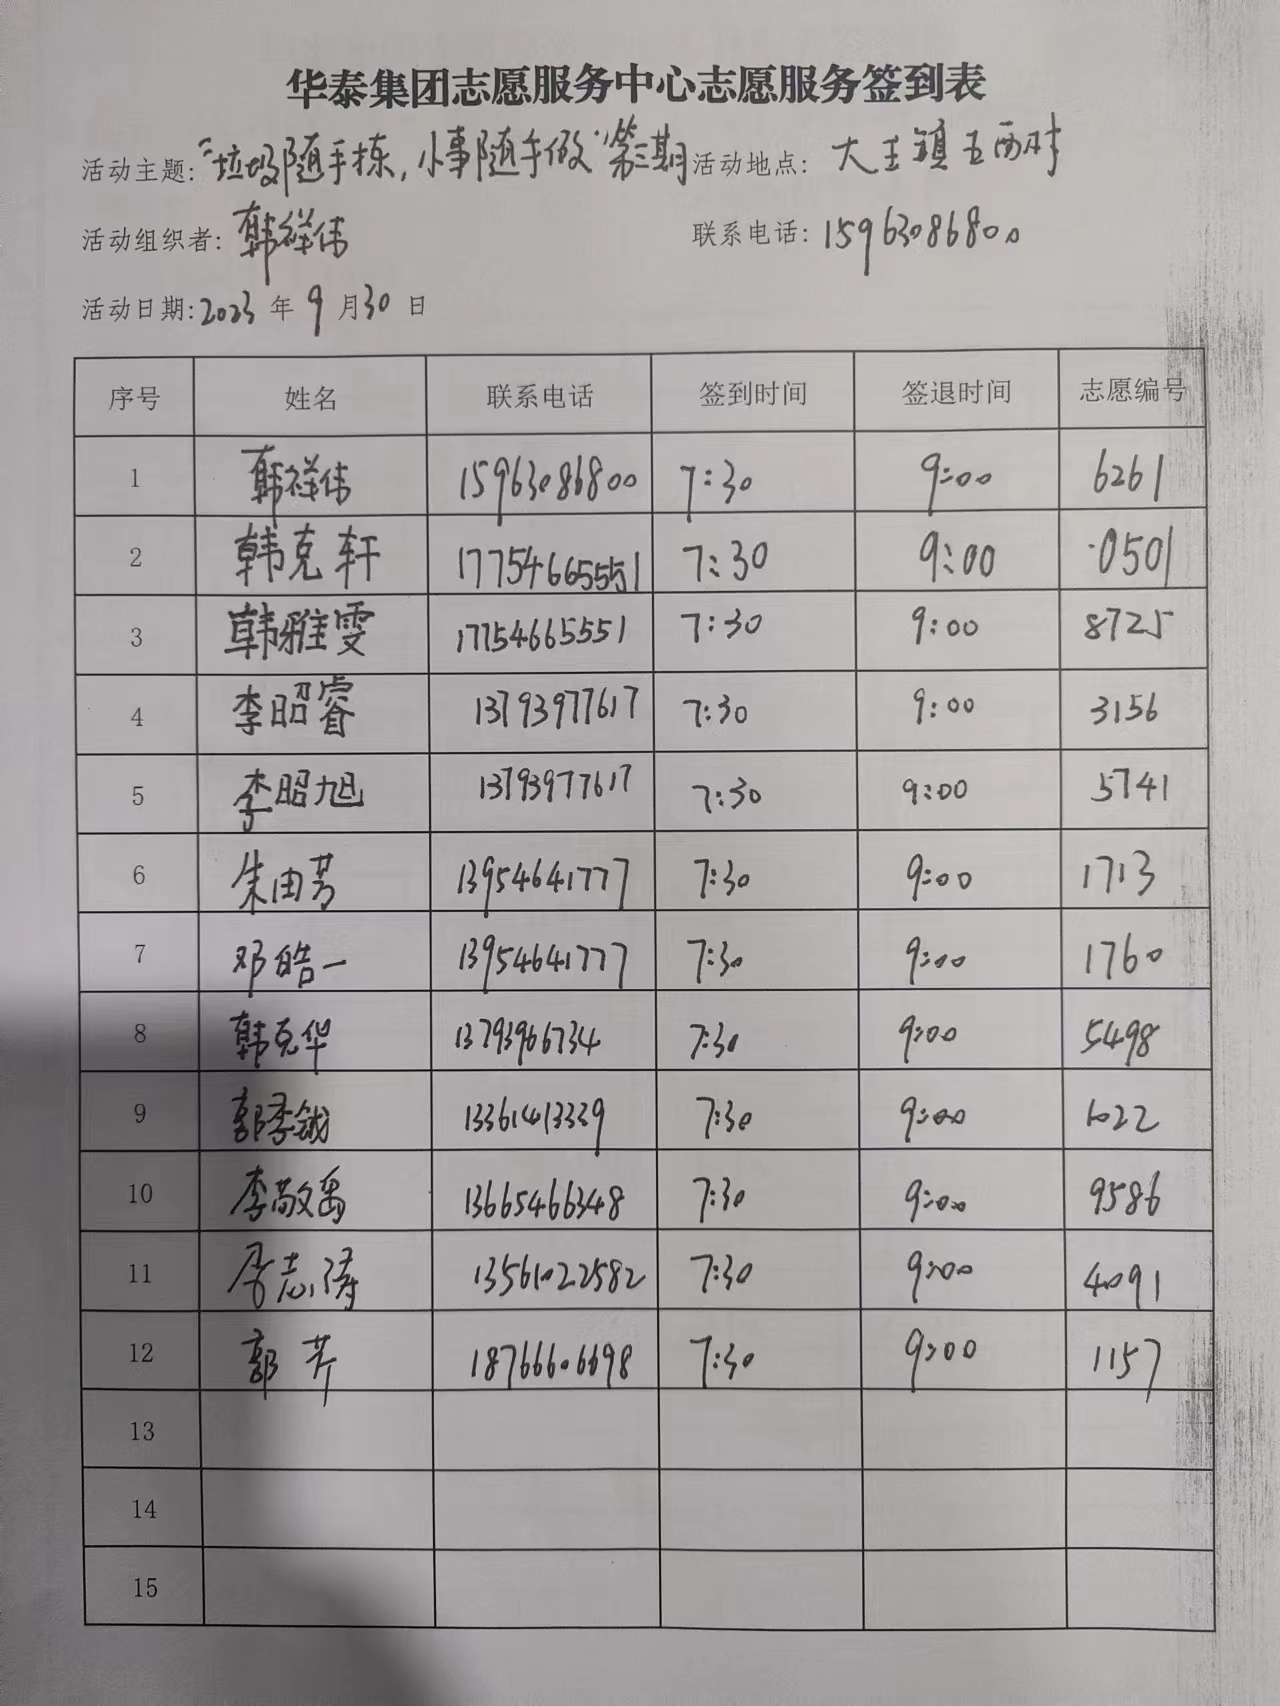 华泰集团志愿服务中心志愿服务签到表
活动主题:“垃圾随手拣,小事随手做”第三期 活动地点: 大王镇五西村
活动组织者: 韩祥伟 联系电话: 15963086800
活动日期: 2023 年 9 月 30 日
序号 姓名 联系电话 签到时间 签退时间 志愿编号
1 韩祥伟 15963086800 7:30 9:00 6261
2 韩克轩 17754665551 7:30 9:00 0501
3 韩雅雯 17754665551 7:30 9:00 8725
4 李昭睿 13793977617 7:30 9:00 3156
5 李昭旭 13793977617 7:30 9:00 5741
6 朱由芳 13954641777 7:30 9:00 1713
7 邓皓一 13954641777 7:30 9:00 1760
8 韩克华 13793966734 7:30 9:00 5498
9 13361413339 7:30 9:00 1022
10 李敬禹 13665466348 7:30 9:00 9586
11 13561022582 7:30 9:00 4091
12 郭芹 18766606698 7:30 9:00 1157
13
14
15